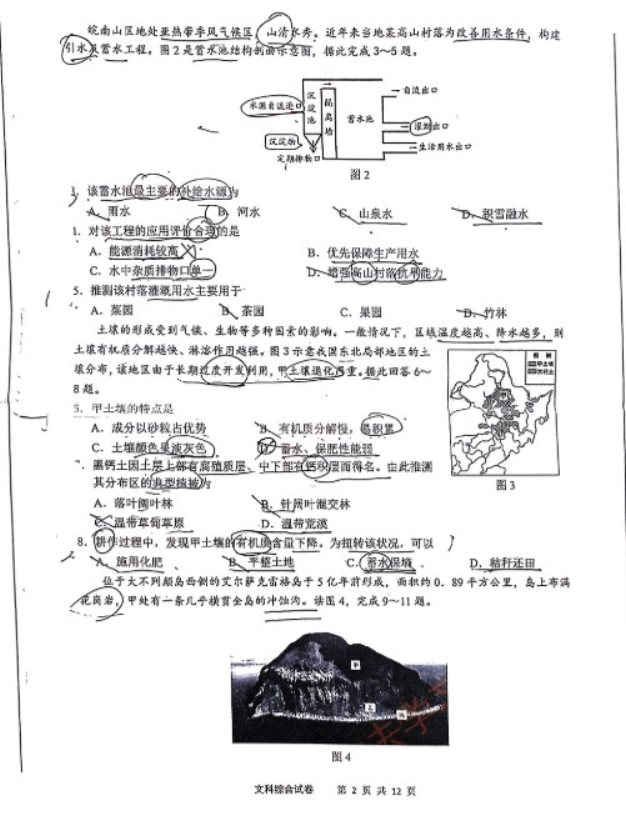 皖南山区地处亚热带季风气候区，山清水秀。近年来当地某高山村落为改善用水条件，构建
引水及蓄水工程。图2是蓄水池结构剖面示意图，据此完成3～5题。
水源自流进口
沉淀池
隔离墙
蓄水池
自流出口
灌溉出口
生活用水出口
沉淀物
定期排物口
图2
3. 该蓄水池最主要的补给水源为
A. 雨水 B. 河水 C. 山泉水 D. 积雪融水
4. 对该工程的应用评价合理的是
A. 能源消耗较高 B. 优先保障生产用水
C. 水中杂质排物口单一 D. 增强高山村落抗旱能力
5. 推测该村落灌溉用水主要用于
A. 菜园 B. 茶园 C. 果园 D. 竹林
土壤的形成受到气候、生物等多种因素的影响。一般情况下，区域温度越高、降水越多，则
土壤有机质分解越快、淋溶作用越强。图3示意我国东北局部地区的土
壤分布，该地区由于长期过度开发利用，甲土壤退化严重。据此回答6～
8题。
图例
甲土壤
图3
A. 成分以砂粒占优势 B. 有机质分解慢，易积累
C. 土壤颜色呈淡灰色 D. 蓄水、保肥性能弱
7. 黑钙土因土层上部有腐殖质层、中下部有钙积层而得名。由此推测
其分布区的典型植被为
A. 落叶阔叶林 B. 针阔叶混交林
C. 温带草甸草原 D. 温带荒漠
8. 耕作过程中，发现甲土壤的有机质含量下降。为扭转该状况，可以
A. 施用化肥 B. 平整土地 C. 蓄水保墒 D. 秸秆还田
位于大不列颠岛西侧的艾尔萨克雷格岛于5亿年前形成，面积约0.89平方公里，岛上布满
花岗岩，甲处有一条几乎横贯全岛的冲蚀沟。读图4，完成9～11题。
甲
乙
丙
图4
文科综合试卷 第 2 页 共 12 页